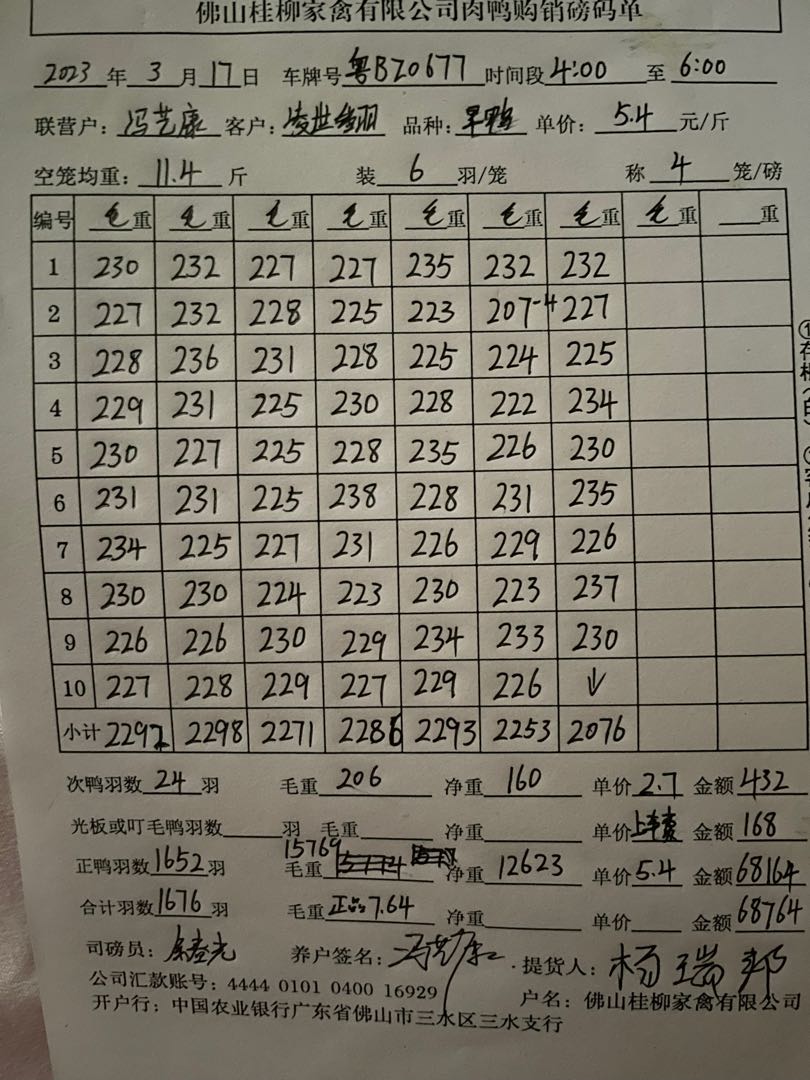 佛山桂柳家禽有限公司肉鸭购销磅码单
2023 年 3 月 17 日 车牌号 粤BZ0677 时间段 4:00 至 6:00
联营户: 冯艺康 客户: 品种: 单价: 5.4 元/斤
空笼均重: 11.4 斤 装 6 羽/笼 称 4 笼/磅
编号 毛重 毛重 毛重 毛重 毛重 毛重 毛重 毛重 重
1 230 232 227 227 235 232 232
2 227 232 228 225 223 207-4 227
3 228 236 231 228 225 224 225
4 229 231 225 230 228 222 234
5 230 227 225 228 235 226 230
6 231 231 225 238 228 231 235
7 234 225 227 231 226 229 226
8 230 230 224 223 230 223 237
9 226 226 230 229 234 233 230
10 227 228 229 227 229 226 ↓
小计 2292 2298 2271 2286 2293 2253 2076
次鸭羽数 24 羽 毛重 206 净重 160 单价 2.7 金额 432
光板或叮毛鸭羽数 羽 毛重 净重 单价 上车费 金额 168
正鸭羽数 1652 羽 毛重 15769 净重 12623 单价 5.4 金额 68164
合计羽数 1676 羽 毛重 正品7.64 净重 单价 金额 68764
司磅员: 养户签名: 冯艺康 提货人: 杨瑞邦
公司汇款账号: 4444 0101 0400 16929 户名: 佛山桂柳家禽有限公司
开户行: 中国农业银行广东省佛山市三水区三水支行